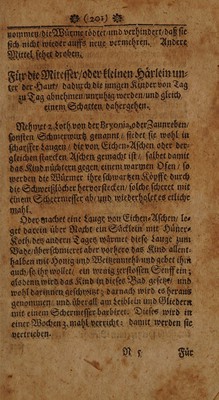 (201)
nommen/ die Würme tödtet und verhindert/ daß sie
sich nicht wieder auffs neue vermehren. Andere
Mittel sehet droben.
Für die Mitesser/ oder kleinen Härlein un-
ter der Haut/ dadurch die jungen Kinder von Tag
zu Tag abnehmen unruhig werden/ und gleich
einem Schatten dahergehen.
Nehmet 2. loth von der Bryonia, oder Zaunreben/
sonsten Schmerwurtz genannt/ siedet sie wohl in
scharffer Laugen/ die von Eichen-Aschen oder der-
gleichen starcken Aschen gemacht ist/ salbet damit
das Kind nackent gegen einem warmen Ofen/ so
werden die Würmer ihre schwartzen Köpffe durch
die Schweißlöcher hervorstecken/ solche scheret mit
einem Schermesser ab/ und wiederholet es etliche
mahl.
Oder machet eine Lauge von Eichen-Aschen/ le-
get darein über Nacht ein Säcklein mit Hüner-
Koth/ des andern Tages wärmet diese Lauge zum
Bade/ überschmieret aber vorhero das Kind allent-
halben mit Honig und Weitzenmehl/ und gebet ihm
auch/ so ihr wollet/ ein wenig zerstossen Senff ein/
alsdenn wird das Kind in dieses Bad gesetzt/ und
wohl darinnen geschwitzt/ darnach wird es heraus
genommen/ und überall am Leiblein und Gliedern
mit einem Schermesser barbiret. Dieses wird in
einer Wochen 3. mahl verricht/ damit werden sie
vertrieben.
N 5 Für